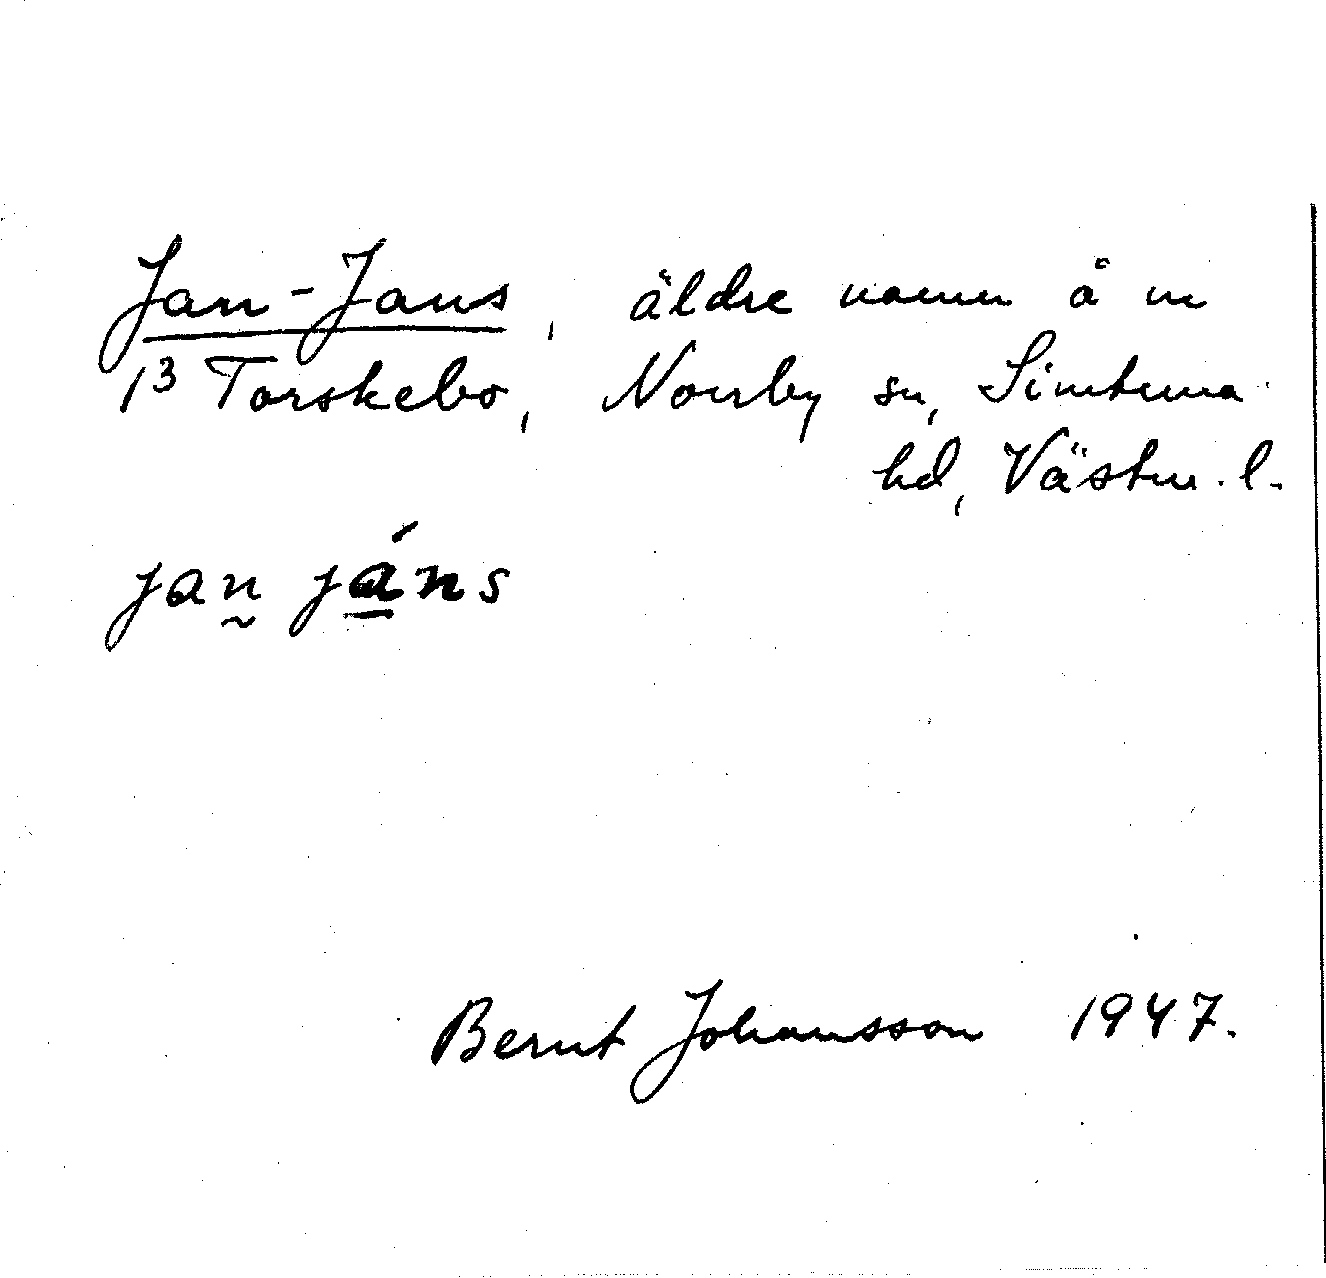 Jan-Jans, äldre namn å nr
1³ Torskebo, Norrby sn, Simtuna
hd, Västm. l.
jan̰ já̱ns
Bernt Johansson 1947.